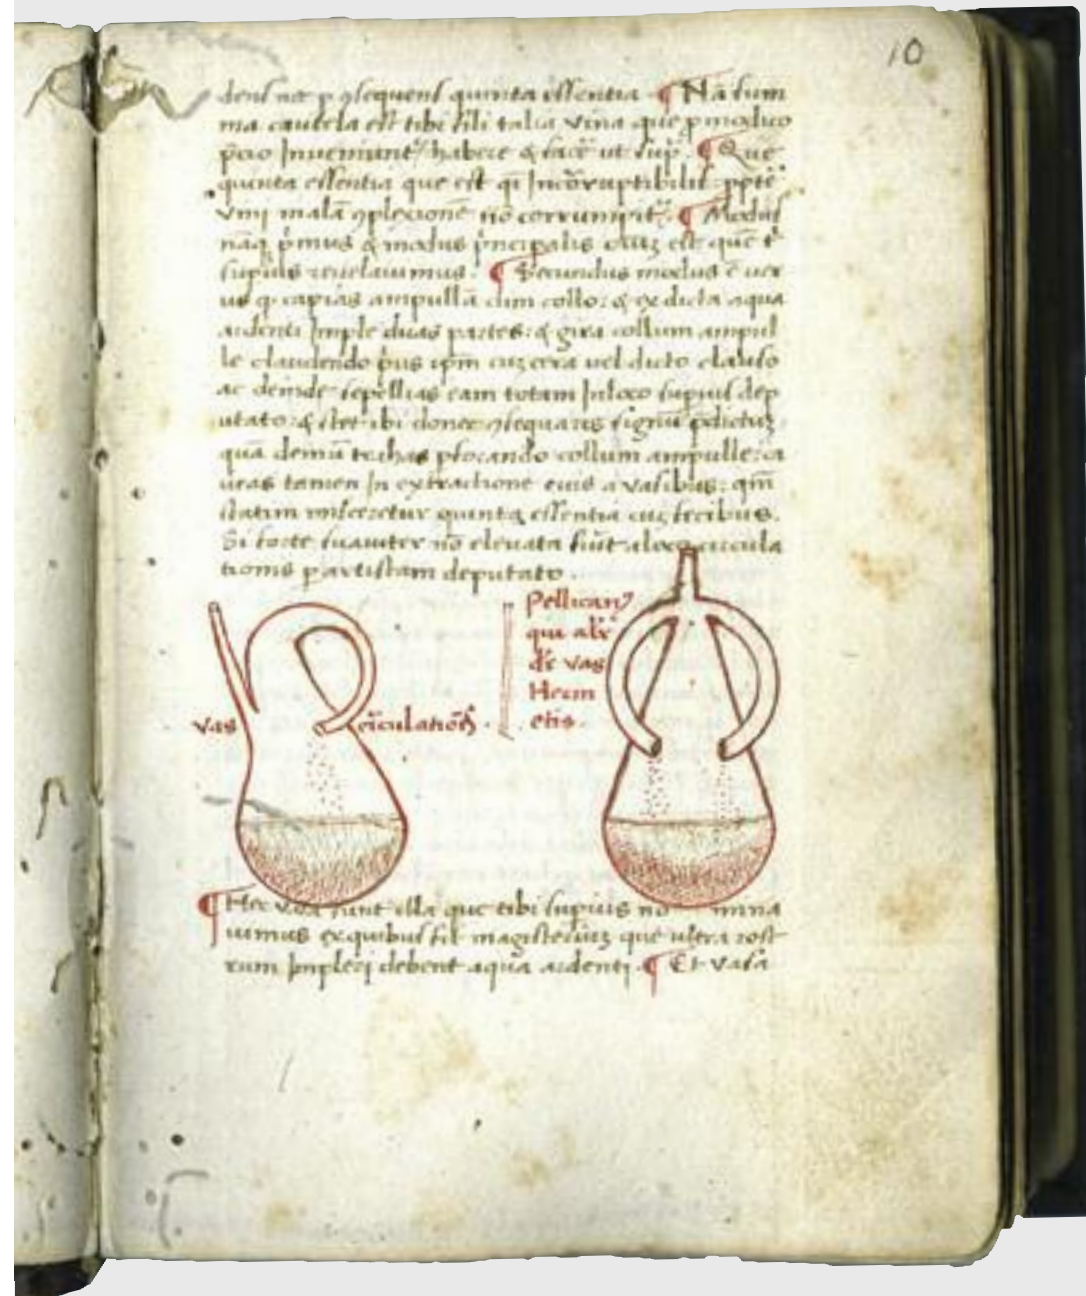 10
quinta essentia ¶ Nā sum
ma cautela est tibi fili talia vina que p modico
p̄cio Inueniunt᷑ habere & facē ut sup̄. ¶ Que
quinta essentia que est q̄ Incōruptibilis ꝓptē
vini malā ꝯplexionē nō corrumpit᷑. ¶ Modus
nāq p̄mus & modus p̄ncipalis est quē
supius reuelauimus. ¶ Secundus modus ē ver
us q capias ampullā cum collo: & ex dicta aqua
ardenti Imple duas partes: & gira collum ampul
le claudendo p̄us ipm cuz cera vel dicto clauso
ac deinde sepellias eam totam In loco supius dep
utato: & stet ibi donec ꝯsequaris signū p̄dictuz
quā demū trahas collum ampulle: ca
ueas tamen In extractione eius a vasibus: qm̄
statim misceretur quinta essentia cuz fecibus.
Si forte suauiter nō eleuata fu͞it a loco circula
tionis deputato.
Pellicanꝰ
qui alr̄
dr̄ vas
Herm
etis.
vas circulatiōis.
¶ Hec vasa sunt illa que tibi supius no mina
uimus ex quibus fit magisteriuz que ultra rost
rum Impleri debent aqua ardenti. ¶ Et vasa